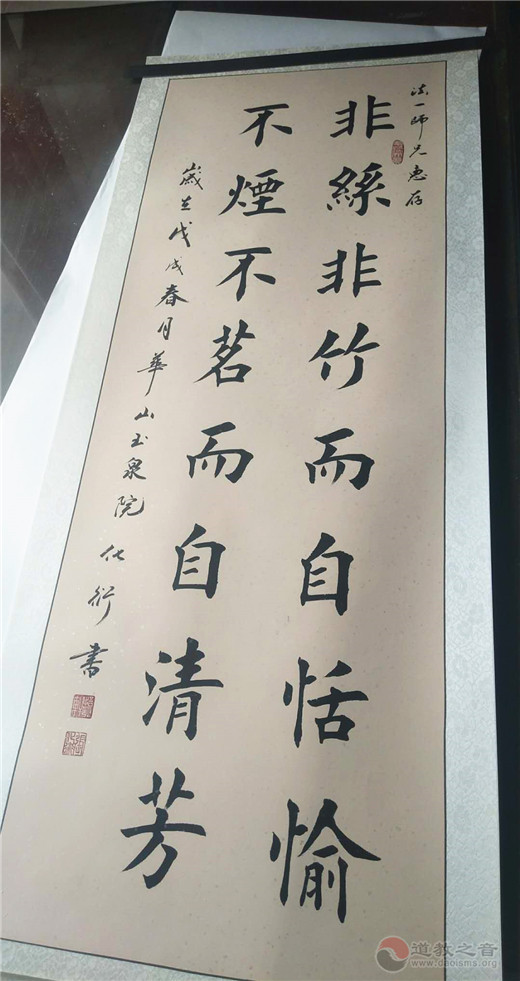 法一師兄惠存
非絲非竹而自恬愉
不煙不茗而自清芳
歲在戊戌春月華山玉泉院化衍書
道教之音
www.daoisms.org